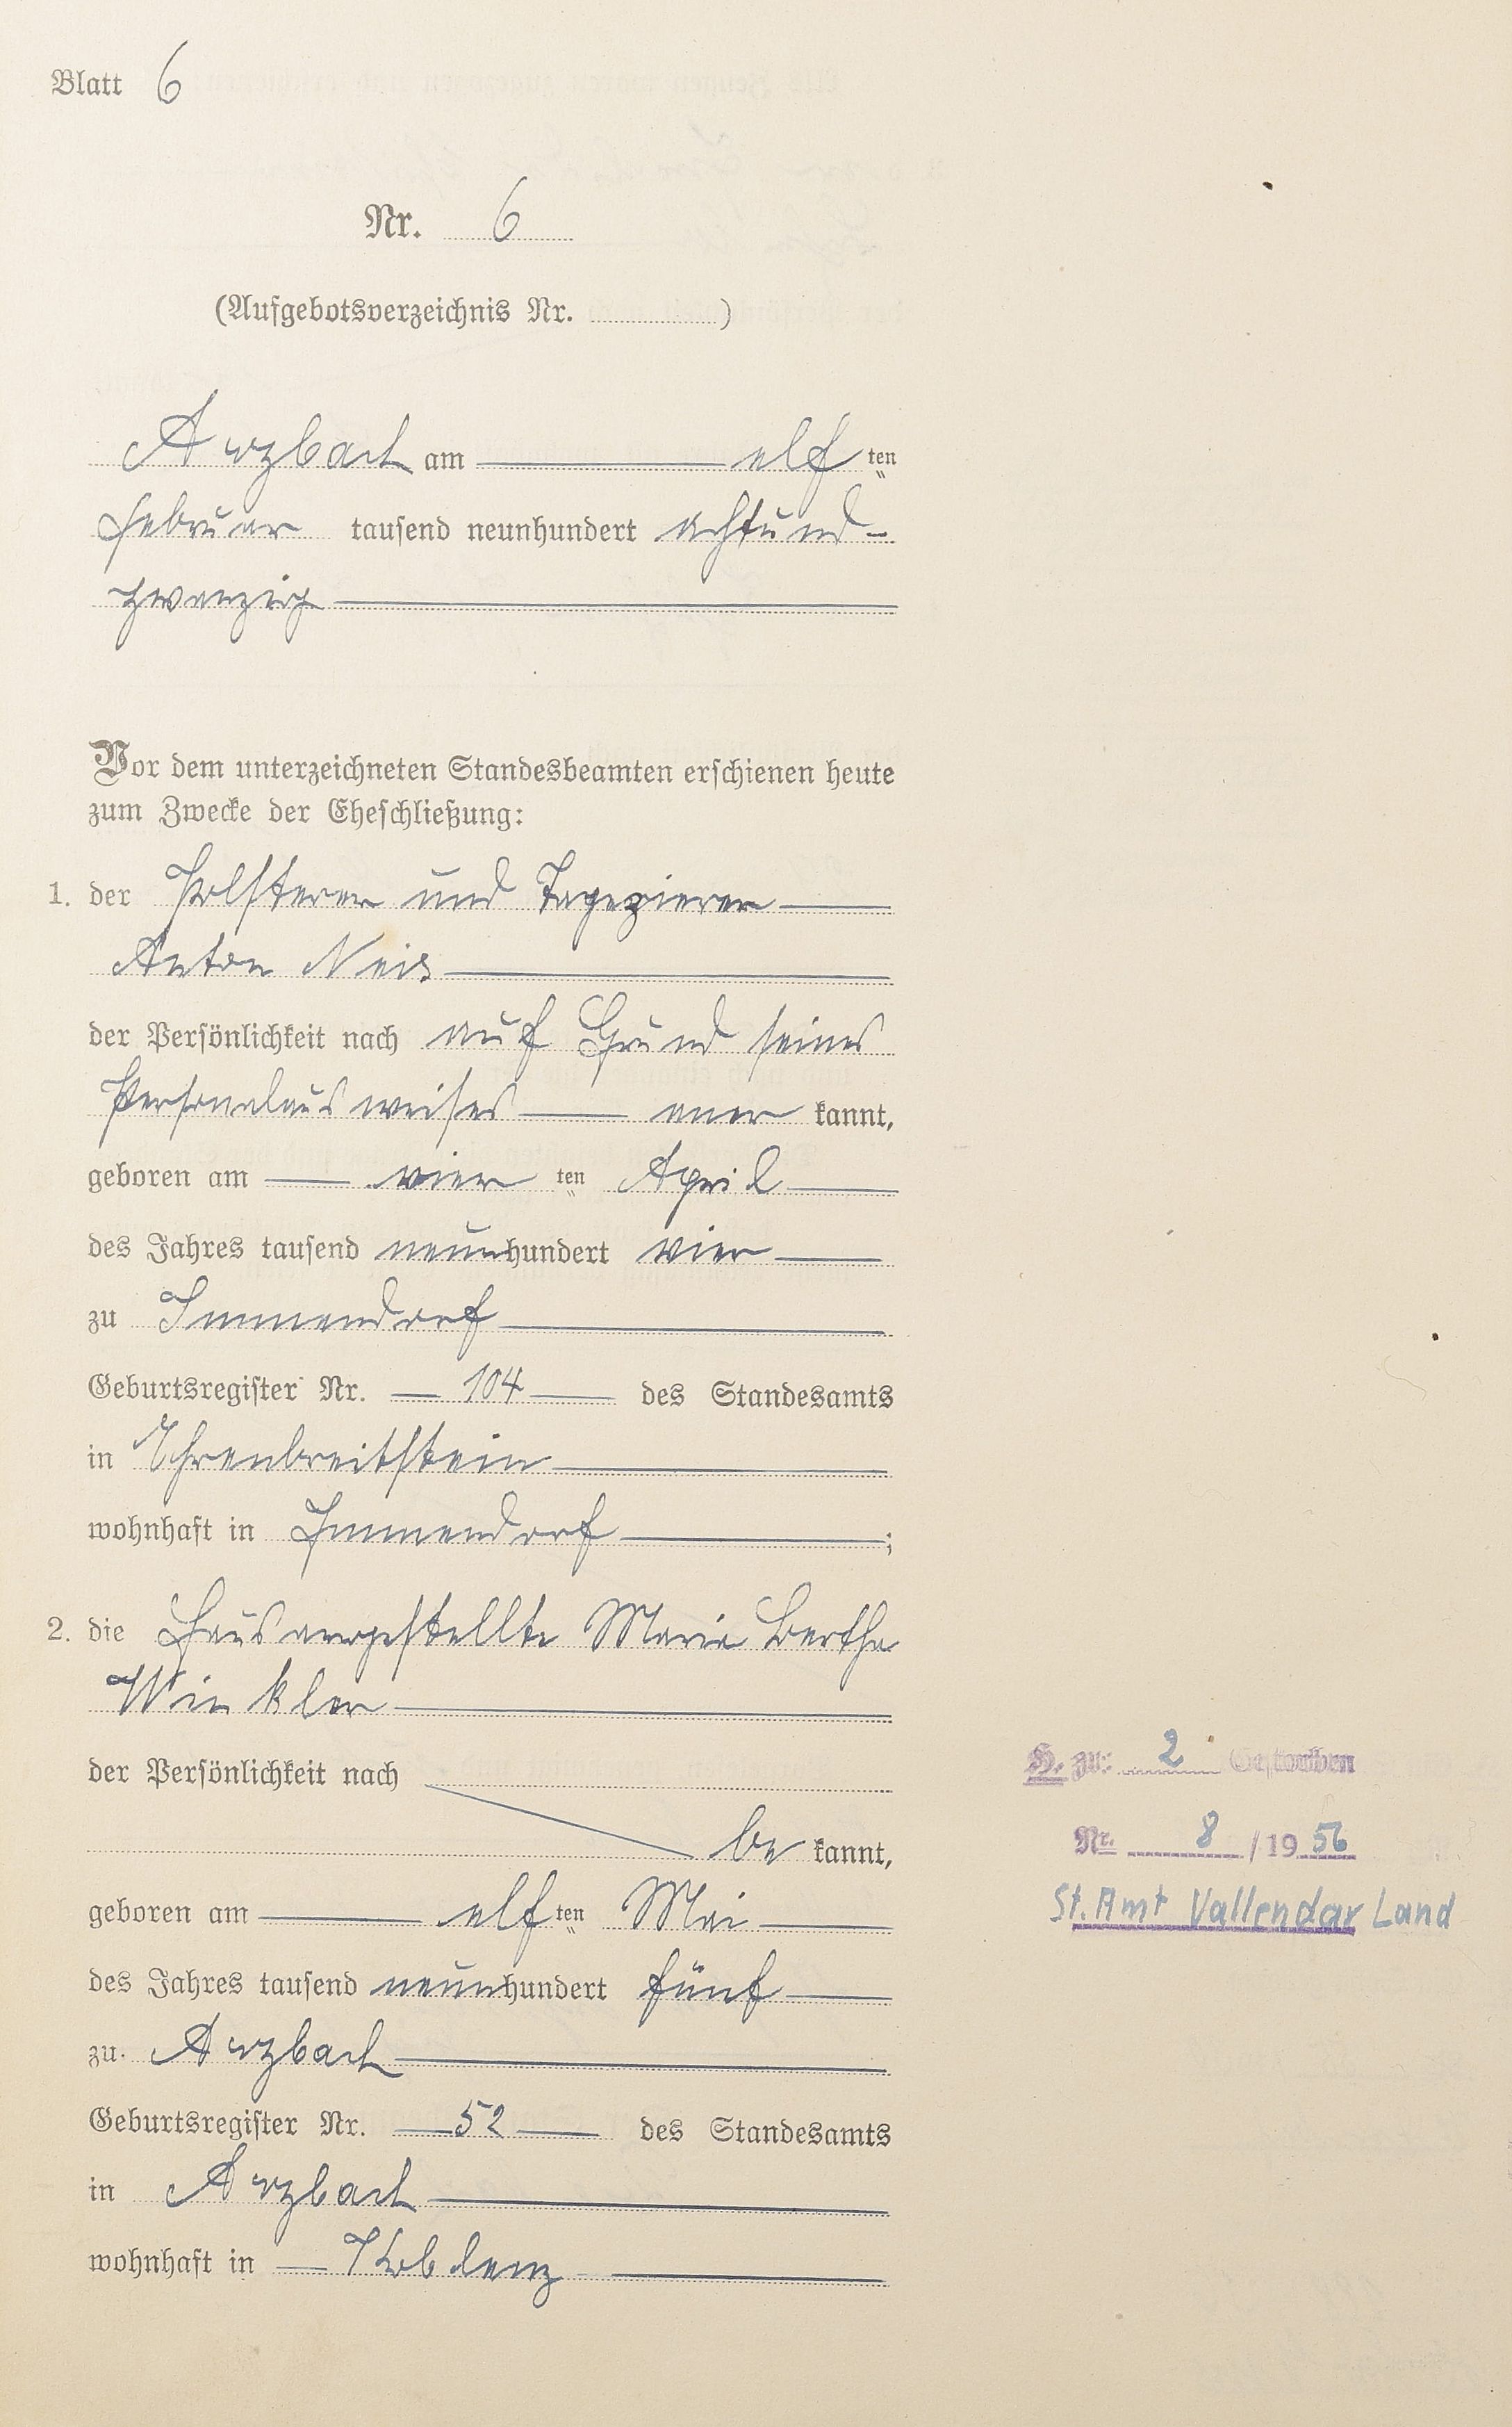 Blatt 6
Nr. 6
(Aufgebotsverzeichnis Nr. )
Arzbach am elf ten
Februar tausend neunhundert achtund-
zwanzig
Vor dem unterzeichneten Standesbeamten erschienen heute
zum Zwecke der Eheschließung:
1. der Polsterer und Tapezierer
Anton Neis
der Persönlichkeit nach auf Grund seines
Personalausweises aner kannt,
geboren am vier ten April
des Jahres tausend neunhundert vier
zu Immendorf
Geburtsregister Nr. 104 des Standesamts
in Ehrenbreitstein
wohnhaft in Immendorf ;
2. die Hausangestellte Maria Bertha
Winkler
der Persönlichkeit nach
be kannt,
geboren am elf ten Mai
des Jahres tausend neunhundert fünf
zu Arzbach
Geburtsregister Nr. 52 des Standesamts
in Arzbach
wohnhaft in Koblenz
H. zu: 2 Gestorben
Nr. 8 / 19 56
St. Amt Vallendar Land